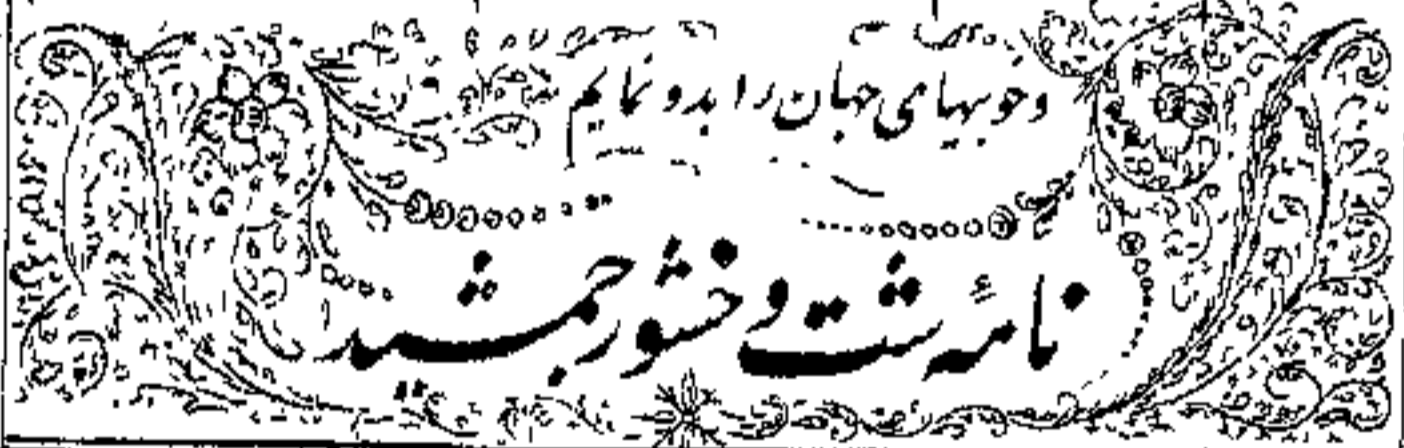 وخوبیهای جهان را بدو نمایم
نامۀ شت وخشور جمشید